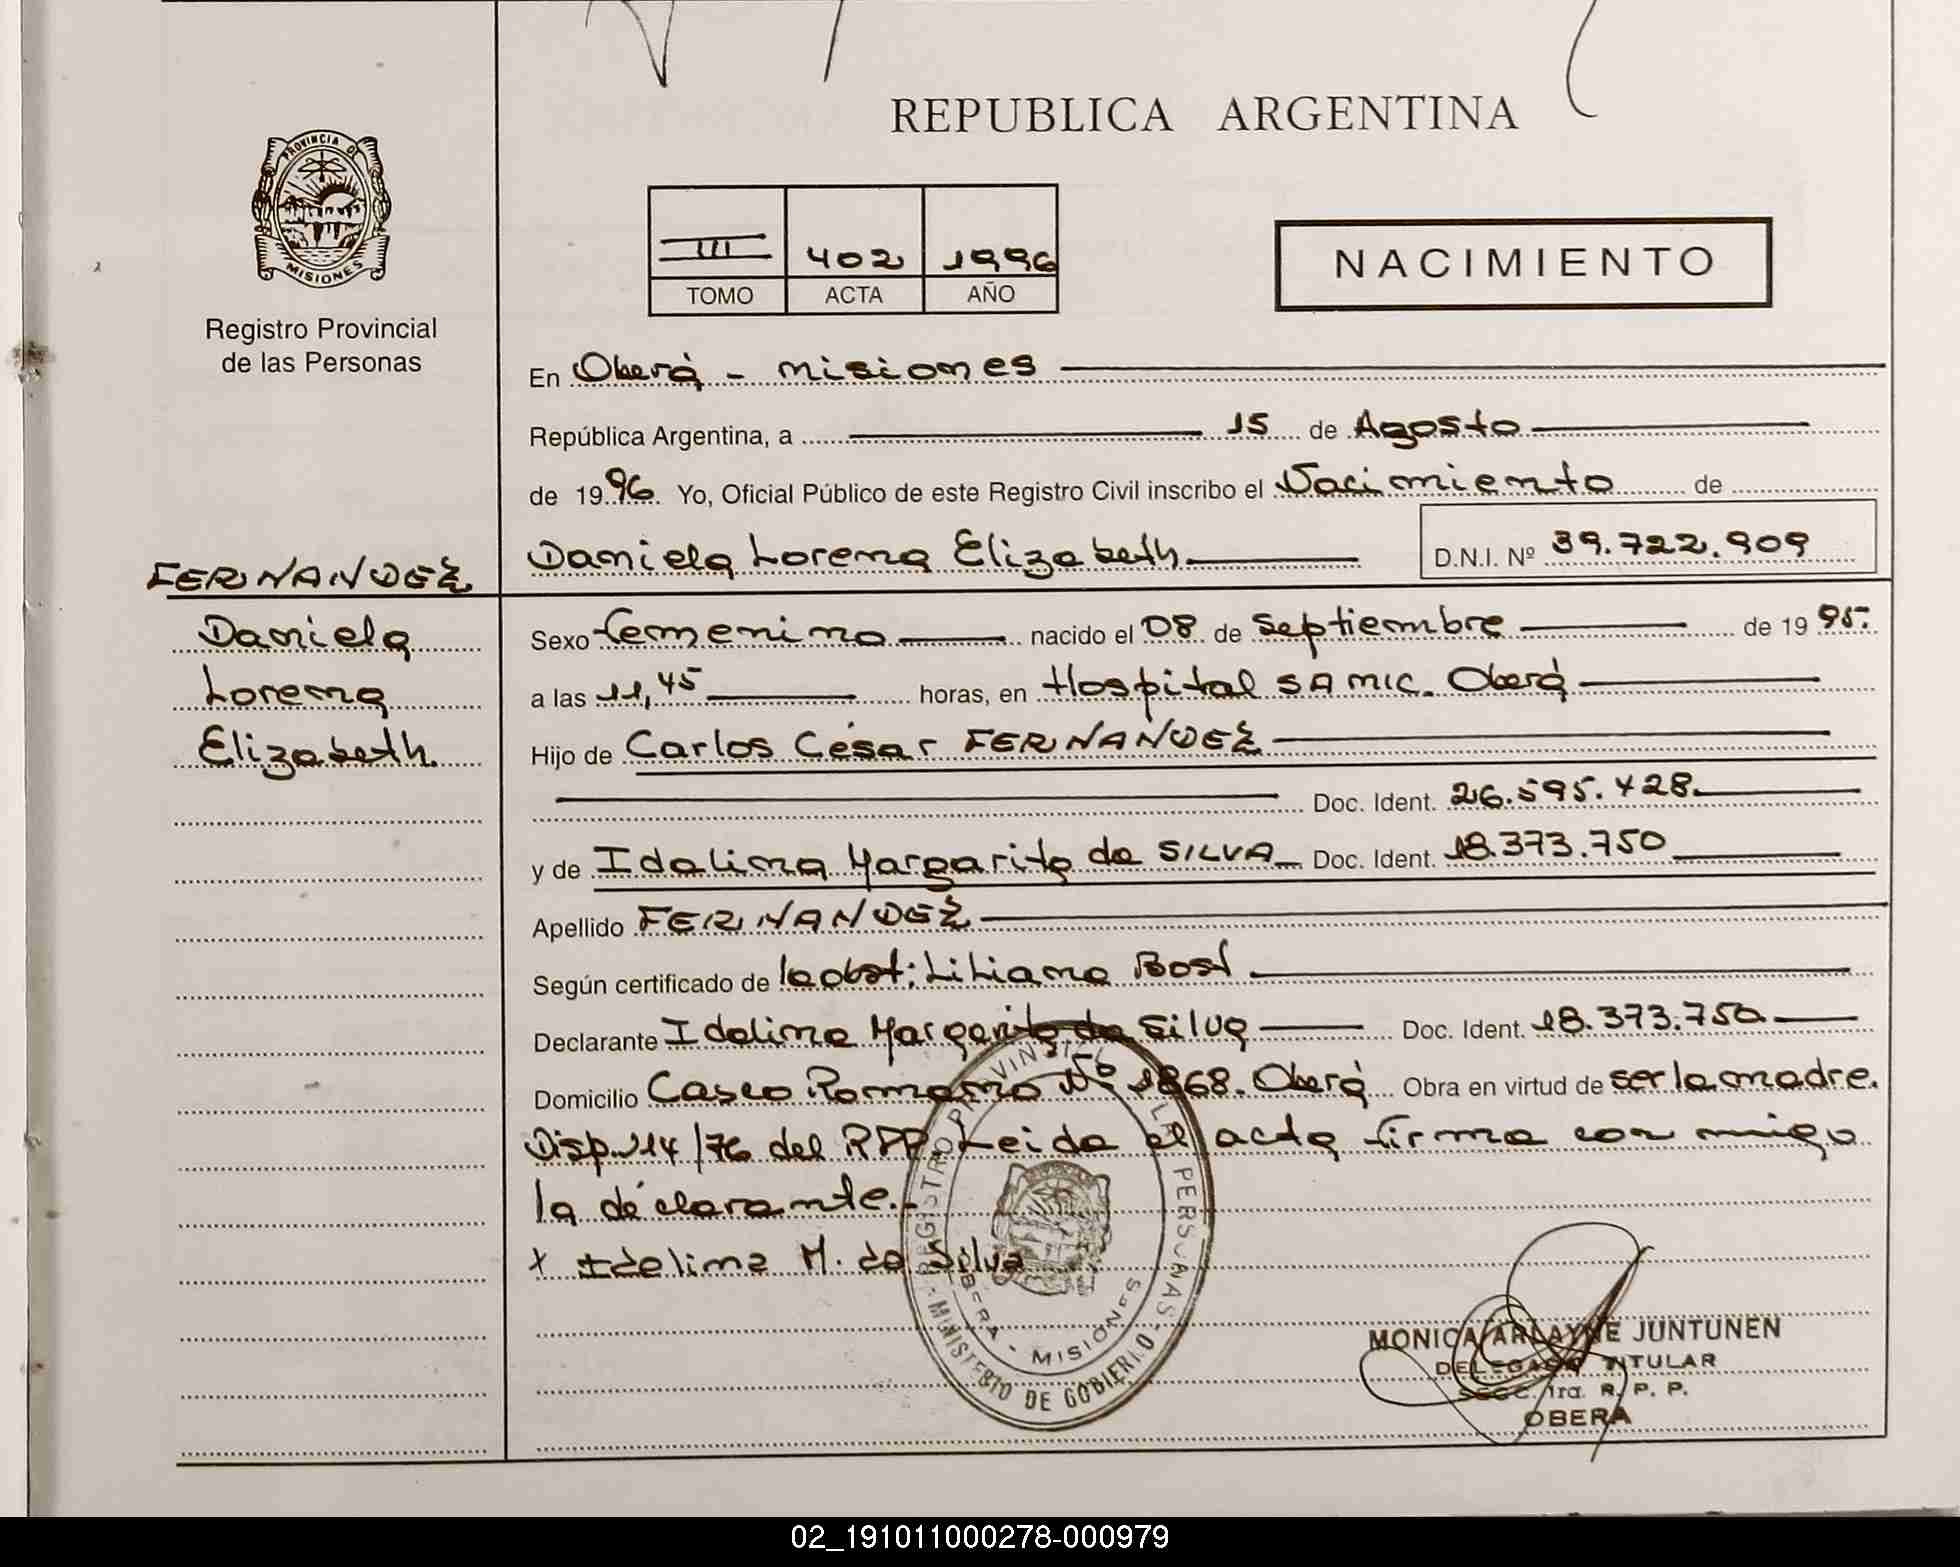 REPUBLICA ARGENTINA
PROVINCIA DE
MISIONES
Registro Provincial
de las Personas
III 402 1996
TOMO ACTA AÑO
NACIMIENTO
En Oberá - Misiones
República Argentina, a 15 de Agosto
de 1996. Yo, Oficial Público de este Registro Civil inscribo el Nacimiento de
Daniela Lorena Elizabeth D.N.I. Nº 39.722.909
FERNANDEZ
Daniela
Lorena
Elizabeth.
Sexo femenino nacido el 08 de Septiembre de 1995.
a las 11,45 horas, en Hospital SAMIC. Oberá
Hijo de Carlos César FERNANDEZ
Doc. Ident. 26.595.428.
y de Idalina Margarita da SILVA Doc. Ident. 18.373.750
Apellido FERNANDEZ
Según certificado de la obst; Liliana Bost
Declarante Idalina Margarita da Silva Doc. Ident. 18.373.750
Domicilio Casco Romano Nº 1868. Oberá Obra en virtud de ser la madre.
Disp. 114/76 del RPP. Leida el acta firma con migo
la declarante.-
x Idalina M. da Silva
REGISTRO PROVINCIAL PERSONAS
MINISTERIO DE GOBIERNO
OBERA - MISIONES
MONICA ARLAYNE JUNTUNEN
DELEGADA TITULAR
SECC. 1ra. R. P. P.
OBERA
02_191011000278-000979